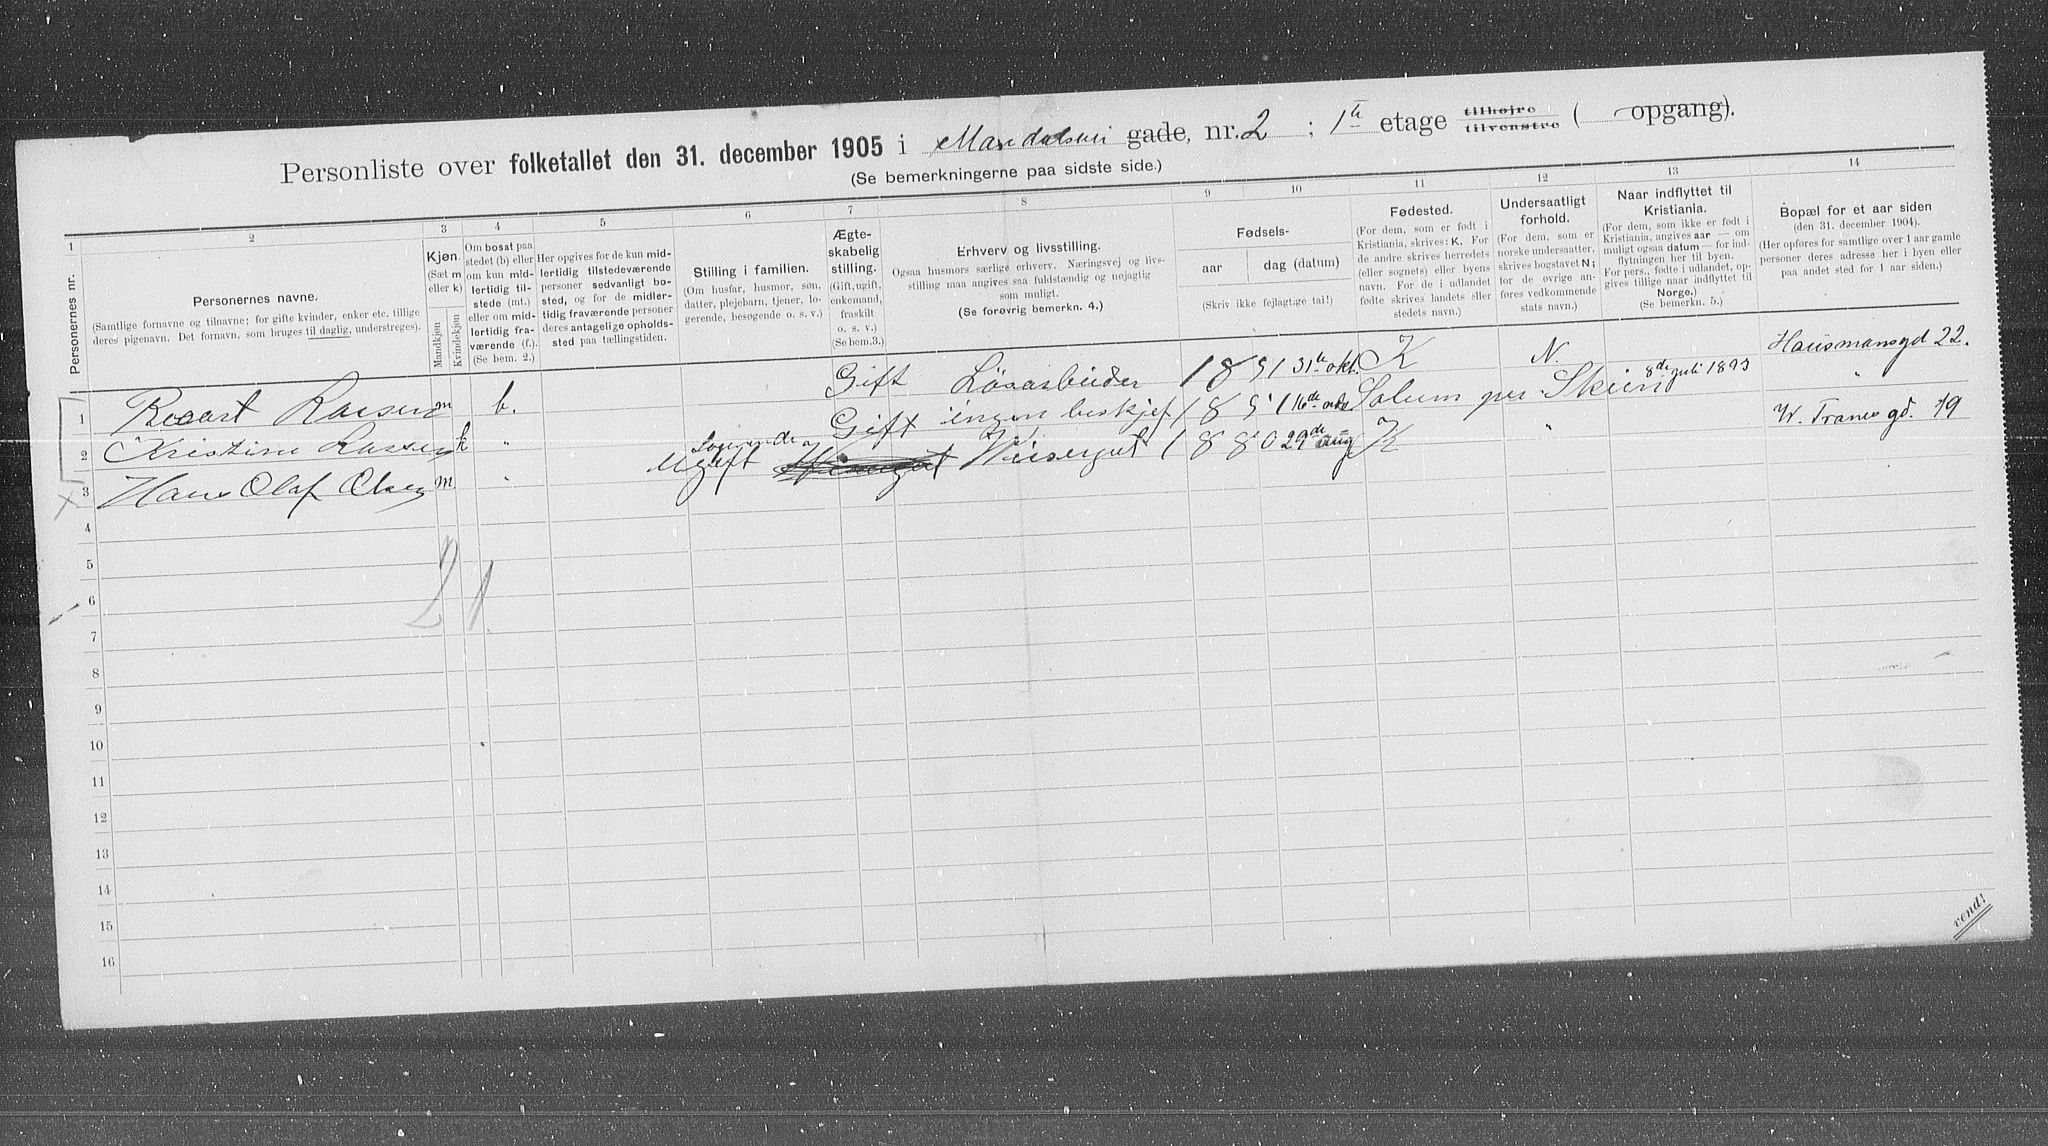 Personliste over folketallet den 31. december 1905 i Mandalsveien gade, nr. 2 ; 1ste etage tilhøire tilvenstre ( opgang).
(Se bemerkningerne paa sidste side.)
1 2 3 4 5 6 7 8 9 10 11 12 13 14
Personernes nr.
Personernes navne.
(Samtlige fornavne og tilnavne; for gifte kvinder, enker etc. tillige
deres pigenavn. Det fornavn, som bruges til daglig, understreges).
Kjøn.
(Sæt m
eller k)
Mandkjøn
Kvindekjøn
Om bosat paa
stedet (b) eller
om kun mid-
lertidig til-
stede (mt.)
eller om mid-
lertidig fra-
værende (f.).
(Se bem. 2.)
Her opgives for de kun mid-
lertidig tilstedeværende
personer sedvanligt bo-
sted, og for de midler-
tidig fraværende personer
deres antagelige opholds-
sted paa tællingstiden.
Stilling i familien.
(Om husfar, husmor, søn,
datter, plejebarn, tjener, lo-
gerende, besøgende o. s. v.)
Ægte-
skabelig
stilling.
(Gift, ugift,
enkemand,
fraskilt
o. s. v.)
(Se bem. 3.)
Erhverv og livsstilling.
Ogsaa husmors særlige erhverv. Næringsvej og livs-
stilling maa angives saa fuldstændig og nøjagtig
som muligt.
(Se forøvrig bemerkn. 4.)
Fødsels-
aar
dag (datum)
(Skriv ikke fejlagtige tal!)
Fødested.
(For dem, som er født i
Kristiania, skrives: K. For
de andre skrives herredets
(eller sognets) eller byens
navn. For de i udlandet
fødte skrives landets eller
stedets navn.)
Undersaatligt
forhold.
(For dem, som er
norske undersaatter,
skrives bogstavet N;
for de øvrige an-
føres vedkommende
stats navn.)
Naar indflyttet til
Kristiania.
(For dem, som ikke er født i
Kristiania, angives aar — om
muligt ogsaa datum — for ind-
flytningen her til byen.
For pers., fødte i udlandet, op-
gives tillige naar indflyttet til
Norge.)
(Se bemerkn. 5.)
Bopæl for et aar siden
(den 31. december 1904).
(Her opføres for samtlige over 1 aar gamle
personer deres adresse her i byen eller
paa andet sted for 1 aar siden.)
1 m b. Gift Løsarbeider 1851 31te okt. K N. Hausmansgd 22.
2 Kristine Larsen k " Gift ingen beskjef 185 16de Solum per Skien 8de juli 1893 "
3 Hans Olaf Olsen m " Ugift Visergut 1880 29de aug K " W. Tranes gd. 19
4
5
6
7
8
9
10
11
12
13
14
15
16
2 1
vend!